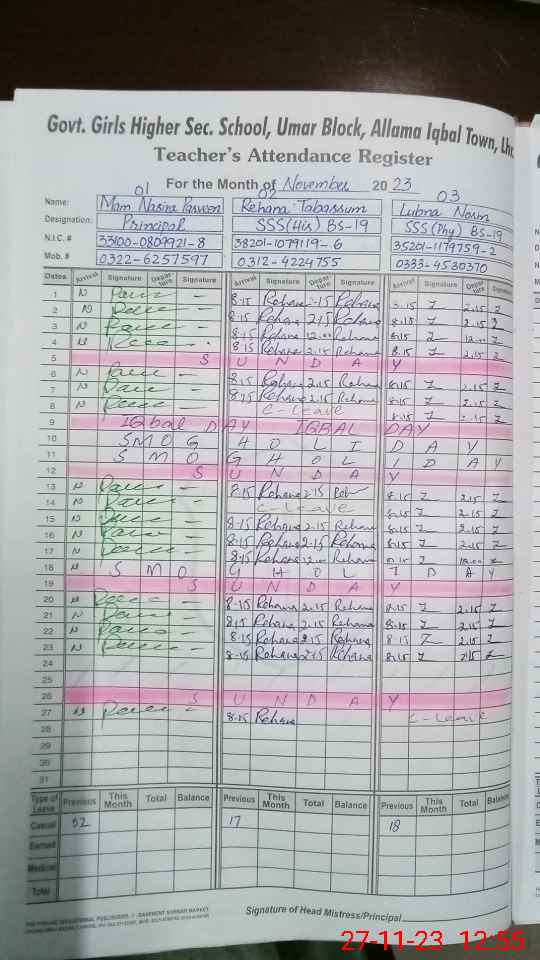 Govt. Girls Higher Sec. School, Umar Block, Allama Iqbal Town, Lhr.
Teacher's Attendance Register
For the Month of November 2023
01 02 03
Name: Mam Nasira Parveen Rehana Tabassum Lubna Nosm
Designation: Principal SSS(His) BS-19 SSS(Phy) BS-19
N.I.C. # 33100-0809921-8 38201-1079119-6 35201-1179759-2
Mob. # 0322-6257597 0312-4224755 0333-4530370
Dates Arrival Signature Depar-ture Signature Arrival Signature Depar-ture Signature Arrival Signature Depar-ture Signature
1 N - 8:15 Rehana 2-15 Rehana 8.15 Z 2.15 Z
2 N - 8:15 Rehana 2.15 Rehana 8.15 Z 2.15 Z
3 N - 8-15 Rehana 12.00 Rehana 8.15 Z 12.00 Z
4 N - 8.15 Rehana 2.15 Rehana 8.15 Z 2.15 Z
5 S U N D A Y
6 N - 8-15 Rehana 2.15 Rehana 8.15 Z 2.15 Z
7 N - 8-15 Rehana 2.15 Rehana 8.15 Z 2.15 Z
8 N - C-Leave 8.15 Z 2.15 Z
9 IQbal DAY IQBAL DAY
10 SMOG HOLIDAY
11 SMOG HOLIDAY
12 S U N D A Y
13 N - 8-15 Rehana 2-15 Reh 8.15 Z 2.15 Z
14 N - C-Leave 8.15 Z 2.15 Z
15 N - 8-15 Rehana 2.15 Rehana 8.15 Z 2.15 Z
16 N - 8-15 Rehana 2-15 Rehana 8.15 Z 2.15 Z
17 N - 8-15 Rehana 12.00 Rehana 8.15 Z 12.00 Z
18 SMOG HOLIDAY
19 S U N D A Y
20 N - 8-15 Rehana 2.15 Rehana 8.15 Z 2.15 Z
21 N - 8.15 Rehana 2.15 Rehana 8.15 Z 2.15 Z
22 N - 8-15 Rehana 2.15 Rehana 8-15 Z 2.15 Z
23 N - 8-15 Rehana 2.15 Rehana 8.15 Z 2.15 Z
24
25
26 S U N D A Y
27 N - 8-15 Rehana C-Leave
28
29
30
31
Type of Leave Previous This Month Total Balance Previous This Month Total Balance Previous This Month Total Balance
Casual 52 17 18
Earned
Medical
Total
Signature of Head Mistress/Principal
27-11-23 12:55